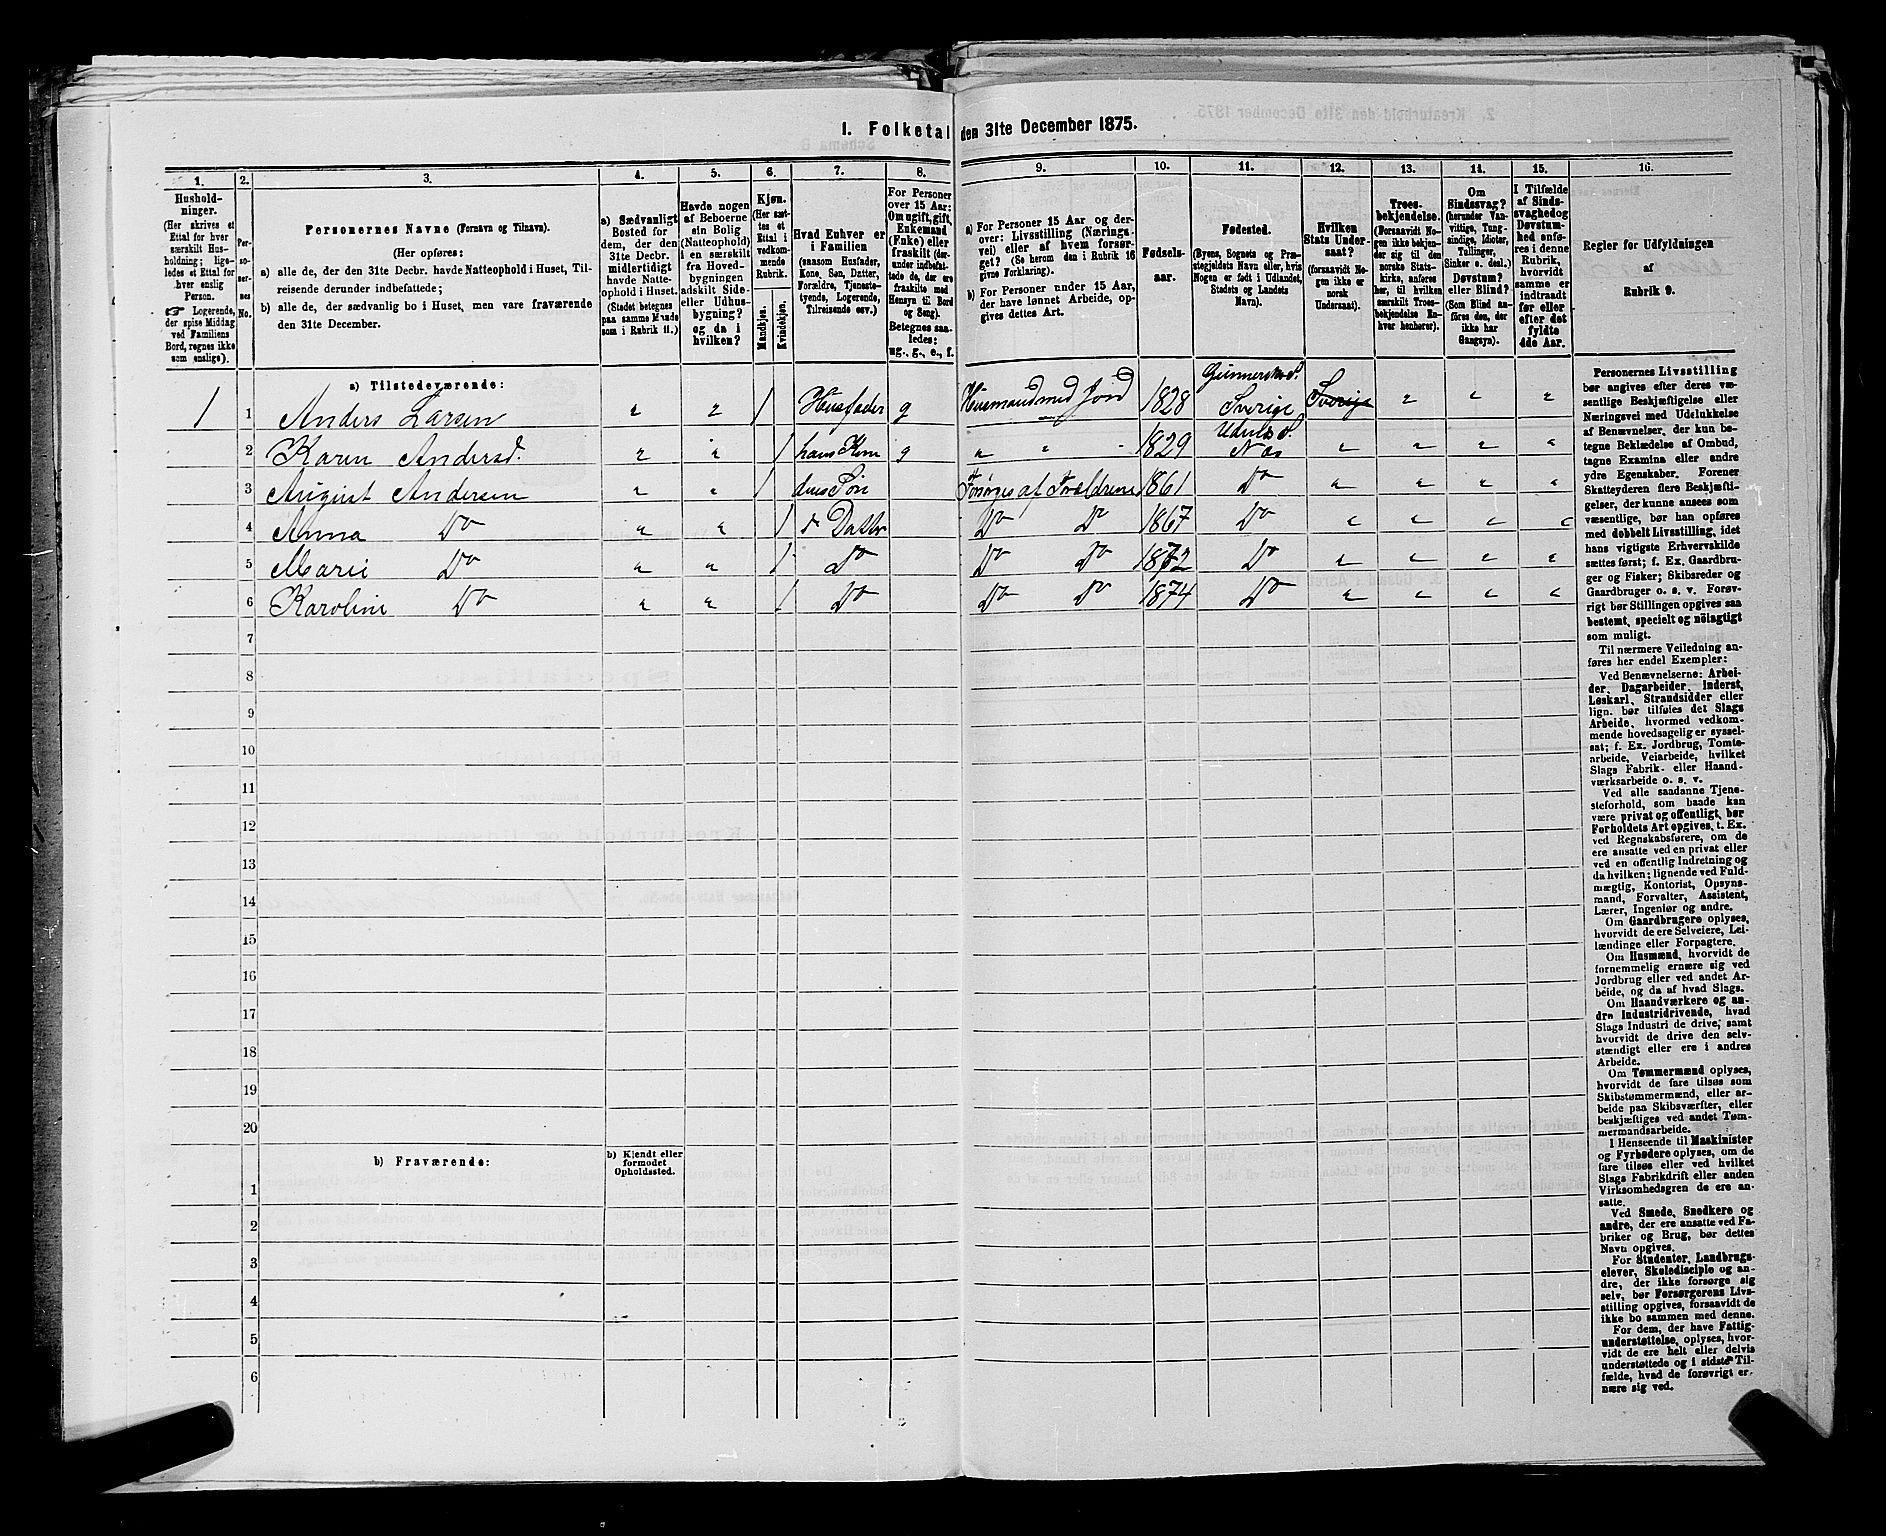 I. Folketal den 31te December 1875.
1.
2.
3.
4.
5.
6.
7.
8.
9.
10.
11.
12.
13.
14.
15.
16.
Hushold-
ninger.
(Her skrives et
Ettal for hver
særskilt Hus-
holdning; lige-
ledes et Ettal for
hver enslig
Person.
☞ Logerende,
der spise Middag
ved Familiens
Bord, regnes ikke
som enslige).
Per-
so-
ner-
nes
No.
Personernes Navne (Fornavn og Tilnavn).
(Her opføres:
a) alle de, der den 31te Decbr. havde Natteophold i Huset, Til-
reisende derunder indbefattede;
b) alle de, der sædvanlig bo i Huset, men vare fraværende
den 31te December.
a) Sædvanligt
Bosted for
dem, der den
31te Decbr.
midlertidigt
havde Natte-
ophold i Huset.
(Stedet betegnes
paa samme Maade
som i Rubrik 11.)
Havde nogen
af Beboerne
sin Bolig
(Natteophold)
i en særskilt
fra Hoved-
bygningen
adskilt Side-
eller Udhus-
bygning?
og da i
hvilken?
Kjøn.
(Her sæt-
tes et
Ettal i
vedkom-
mende
Rubrik.
Mandkjøn.
Kvindekjøn.
Hvad Enhver er
i Familien
(saasom Husfader,
Kone, Søn, Datter,
Forældre, Tjeneste-
tyende, Logerende,
Tilreisende osv.)
For Personer
over 15 Aar:
Om ugift, gift,
Enkemand
(Enke) eller
fraskilt (der-
under indbefat-
tede de, der ere
fraskilte med
Hensyn til Bord
og Seng).
Betegnes saa-
ledes:
ug., g., e., f.
a) For Personer 15 Aar og der-
over: Livsstilling (Nærings-
vei) eller af hvem forsør-
get? (Se herom den i Rubrik 16
givne Forklaring).
b) For Personer under 15 Aar,
der have lønnet Arbeide, op-
gives dettes Art.
Fødsels-
aar.
Fødested.
(Byens, Sognets og Præ-
stegjeldets Navn eller, hvis
Nogen er født i Udlandet,
Stedets og Landets
Navn).
Hvilken
Stats Under-
saat?
(forsaavidt No-
gen ikke er
norsk
Undersaat).
Troes-
bekjendelse.
(Forsaavidt No-
gen ikke bekjen-
der sig til den
norske Stats-
kirke, anføres
her, til hvilken
særskilt Troes-
bekjendelse En-
hver henhører).
Om
Sindssvag?
(herunder Van-
vittige, Tung-
sindige, Idioter,
Tullinger,
Sinker o. desl.)
Døvstum?
eller Blind?
(Som Blind an-
føres den, der
ikke har
Gangsyn).
I Tilfælde
af Sinds-
svaghed og
Døvstum-
hed anfø-
res i denne
Rubrik,
hvorvidt
samme er
indtraadt
før eller
efter det
fyldte
4de Aar.
Regler for Udfyldningen
af
Rubrik 9.
a) Tilstedeværende:
1 1 Anders Larsen " " 1 Husfader g Husmand med Jord 1828 Sverige Sverige " " "
2 Karen Andersd. " " 1 hans Kone g " " " 1829 Næs " " " "
3 August Andersen " " 1 deres Søn Forsørges af Forældrene 1861 Do " " " "
4 Anna Do " " 1 d. Datter Do Do 1867 Do " " " "
5 Marie Do " " 1 Do Do Do 1872 Do " " " "
6 Karoline Do " " 1 Do Do Do 1874 Do " " " "
7
8
9
10
11
12
13
14
15
16
17
18
19
20
b) Fraværende:
b) Kjendt eller
formodet
Opholdssted.
1
2
3
4
5
6
Personernes Livsstilling
bør angives efter deres væ-
sentlige Beskjæftigelse eller
Næringsvei med Udelukkelse
af Benævnelser, der kun be-
tegne Beklædelse af Ombud,
tagne Examina eller andre
ydre Egenskaber. Forener
Skatteyderen flere Beskjæfti-
gelser, der kunne ansees som
væsentlige, bør han opføres
med dobbelt Livsstilling, idet
hans vigtigste Erhvervskilde
sættes først; f. Ex. Gaardbru-
ger og Fisker; Skibsreder og
Gaardbruger o. s. v. Forøv-
rigt bør Stillingen opgives saa
bestemt, specielt og nöiagtigt
som muligt.
Til nærmere Veiledning an-
føres her endel Exempler:
Ved Benævnelserne: Arbei-
der, Dagarbeider, Inderst,
Løskarl, Strandsidder eller
lign. bør tilføies det Slags
Arbeide, hvormed vedkom-
mende hovedsagelig er syssel-
sat; f. Ex. Jordbrug, Tomte-
arbeide, Veiarbeide, hvilket
Slags Fabrik- eller Haand-
værksarbeide o. s. v.
Ved alle saadanne Tjene-
steforhold, som baade kan
være privat og offentligt, bør
Forholdets Art opgives, t. Ex.
ved Regnskabsførere, om de
ere ansatte ved en privat eller
ved en offentlig Indretning og
da hvilken; lignende ved Fuld-
mægtig, Kontorist, Opsyns-
mand, Forvalter, Assistent,
Lærer, Ingeniør og andre.
Om Gaardbrugere oplyses,
hvorvidt de ere Selveiere, Lei-
lændinge eller Forpagtere.
Om Husmænd, hvorvidt de
fornemmelig ernære sig ved
Jordbrug eller ved andet Ar-
beide, og da af hvad Slags.
Om Haandværkere og an-
dre Industridrivende, hvad
Slags Industri de drive, samt
hvorvidt de drive den selv-
stændigt eller ere i andres
Arbeide.
Om Tømmermænd oplyses,
hvorvidt de fare tilsøs som
Skibstømmermænd, eller ar-
beide paa Skibsværfter, eller
beskjæftiges ved andet Tøm-
mermandsarbeide.
I Henseende til Maskinister
og Fyrbødere oplyses, om de
fare tilsøs eller ved hvilket
Slags Fabrikdrift eller anden
Virksomhedsgren de ere an-
satte.
Ved Smede, Snedkere og
andre, der ere ansatte ved Fa-
briker og Brug, bør dettes
Navn opgives.
For Studenter, Landbrugs-
elever, Skoledisciple og an-
dre, der ikke forsørge sig
selv, bør Forsørgerens Livs-
stilling opgives, forsaavidt de
ikke bo sammen med denne.
For dem, der have Fattig-
understøttelse, oplyses, hvor-
vidt de ere helt eller delvis
understøttede og i sidste Til-
fælde, hvad de forøvrigt er-
nære sig ved.